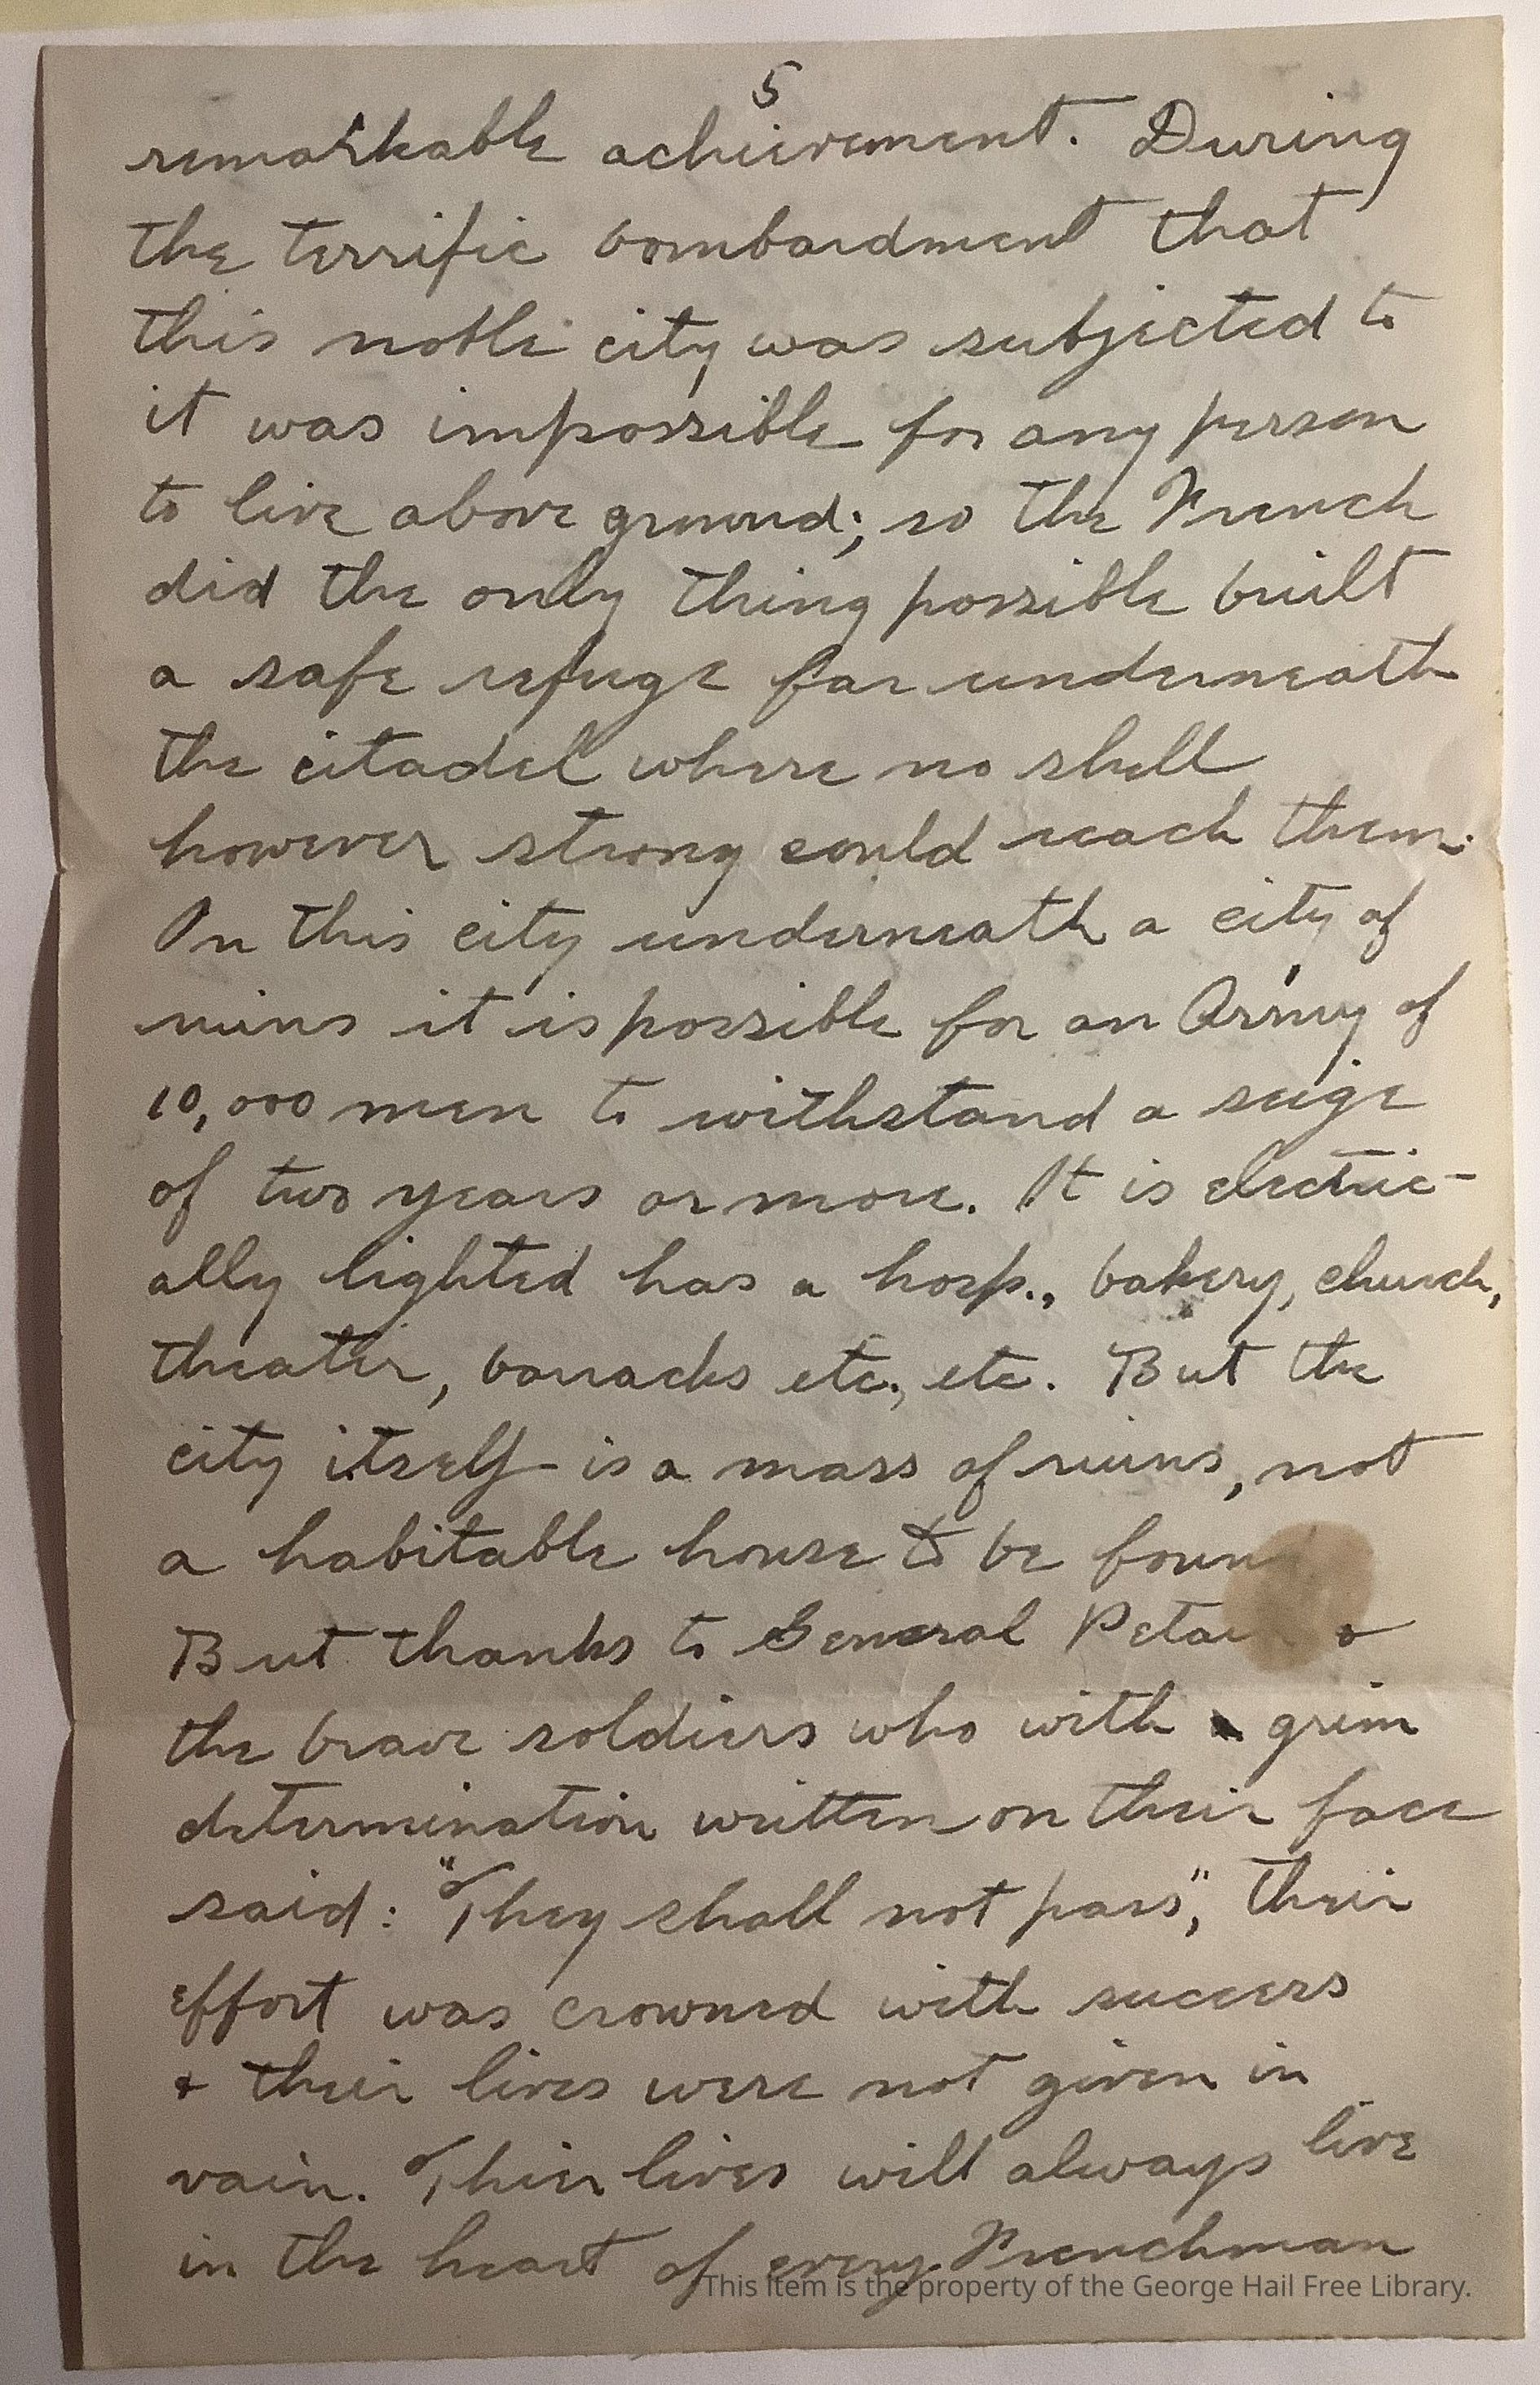 5
remarkable achievement. During
the terrific bombardment that
this noble city was subjected to
it was impossible for any person
to live above ground; so the French
did the only thing possible built
a safe refuge far underneath
the citadel where no shell
however strong could reach them.
In this city underneath a city of
ruins it is possible for an Army of
10,000 men to withstand a seige
of two years or more. It is electric-
ally lighted has a hosp., bakery, church,
theater, barracks etc., etc. But the
city itself is a mass of ruins, not
a habitable house to be found
But thanks to General Petain &
the brave soldiers who with grim
determination written on their face
said: "They shall not pass", their
effort was crowned with success
& their lives were not given in
vain. Thier lives will always live
in the heart of every Frenchman
This item is the property of the George Hail Free Library.